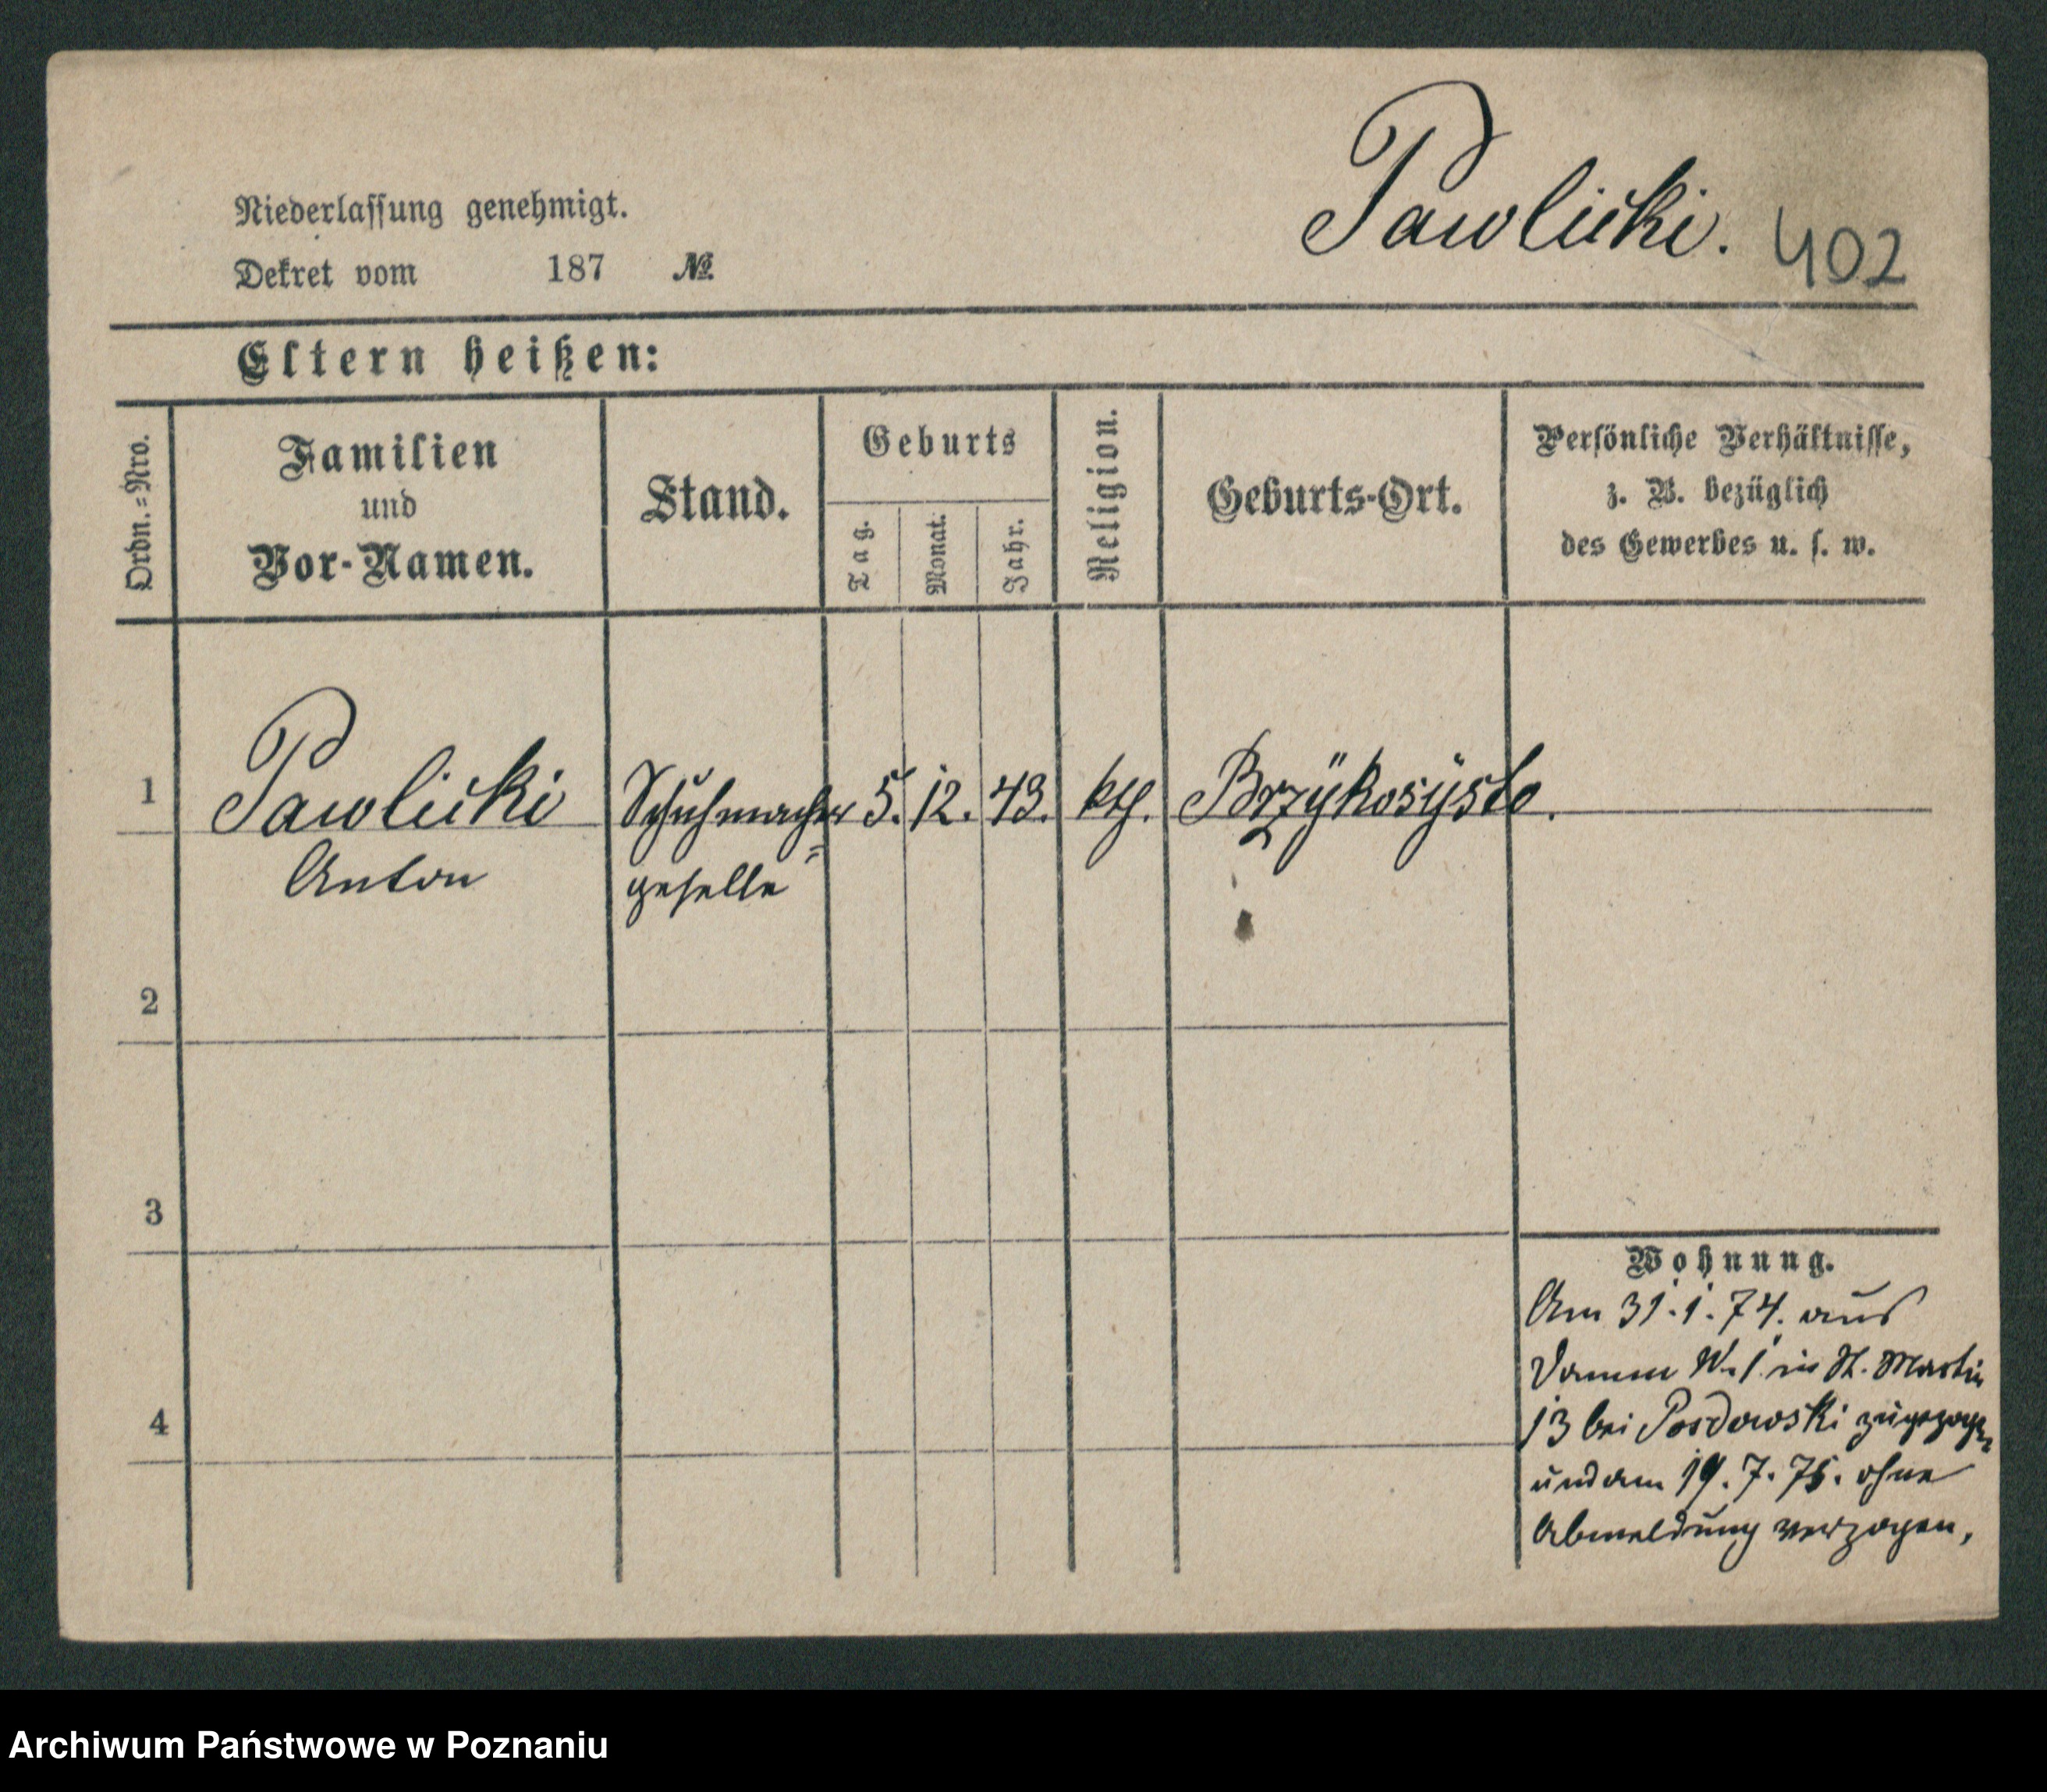 Pawlicki. 402
Niederlassung genehmigt.
Dekret vom 187 №
Eltern heißen:
Ordn.=Nro.
Familien
und
Vor-Namen.
Stand.
Geburts
Tag.
Monat.
Jahr.
Religion.
Geburts-Ort.
Persönliche Verhältnisse,
z. B. bezüglich
des Gewerbes u. s. w.
1 Pawlicki Schuhmacher= 5. 12. 43. kth. Brzÿkosÿsto.
Anton geselle
2
3
4
Wohnung.
Am 31.1.74. aus
in St. Martin
13 bei Posdowski zugezogen
und am 19.7.75. ohne
Abmeldung verzogen,
Archiwum Państwowe w Poznaniu